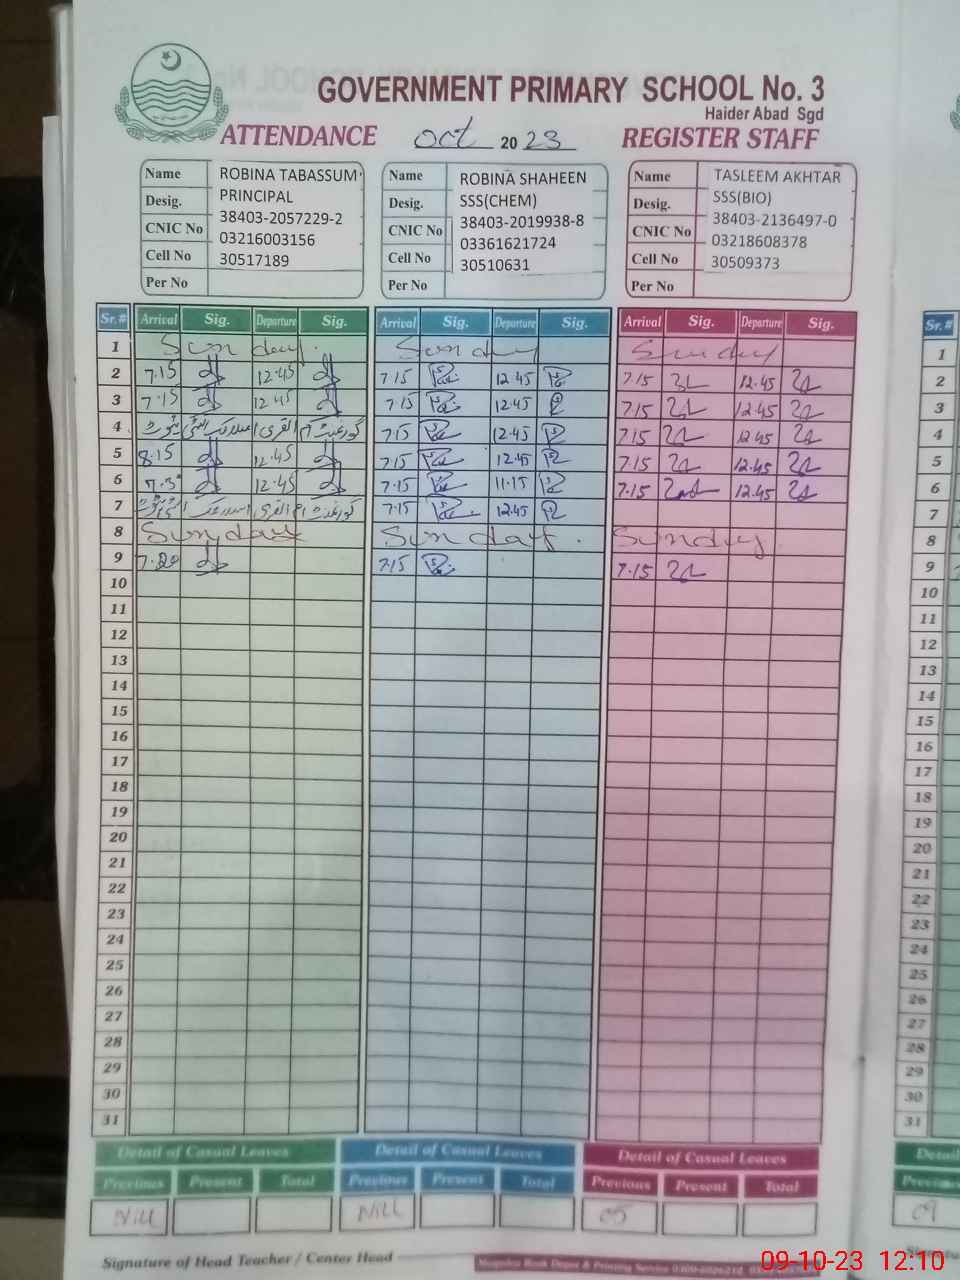 GOVERNMENT PRIMARY SCHOOL No. 3
Haider Abad Sgd
ATTENDANCE Oct 20 23 REGISTER STAFF
Name ROBINA TABASSUM Name ROBINA SHAHEEN Name TASLEEM AKHTAR
Desig. PRINCIPAL Desig. SSS(CHEM) Desig. SSS(BIO)
CNIC No 38403-2057229-2 CNIC No 38403-2019938-8 CNIC No 38403-2136497-0
Cell No 03216003156 Cell No 03361621724 Cell No 03218608378
Per No 30517189 Per No 30510631 Per No 30509373
Sr.# Arrival Sig. Departure Sig. Arrival Sig. Departure Sig. Arrival Sig. Departure Sig. Sr.#
1 Sunday. Sunday Sunday 1
2 7.15 12.45 7.15 12.45 7.15 12.45 2
3 7.15 12.45 7.15 12.45 7.15 12.45 3
4 7.15 12.45 7.15 12.45 4
5 8.15 12.45 7.15 12.45 7.15 12.45 5
6 12.45 7.15 11.15 7.15 12.45 6
7 7.15 12.45 7
8 Sunday Sunday. Sunday. 8
9 7.15 7.15 9
10 10
11 11
12 12
13 13
14 14
15 15
16 16
17 17
18 18
19 19
20 20
21 21
22 22
23 23
24 24
25 25
26 26
27 27
28 28
29 29
30 30
31 31
Detail of Casual Leaves Detail of Casual Leaves Detail of Casual Leaves Detail
Previous Present Total Previous Present Total Previous Present Total Previous
Nill Nill 05 09
Signature of Head Teacher / Center Head
09-10-23 12:10